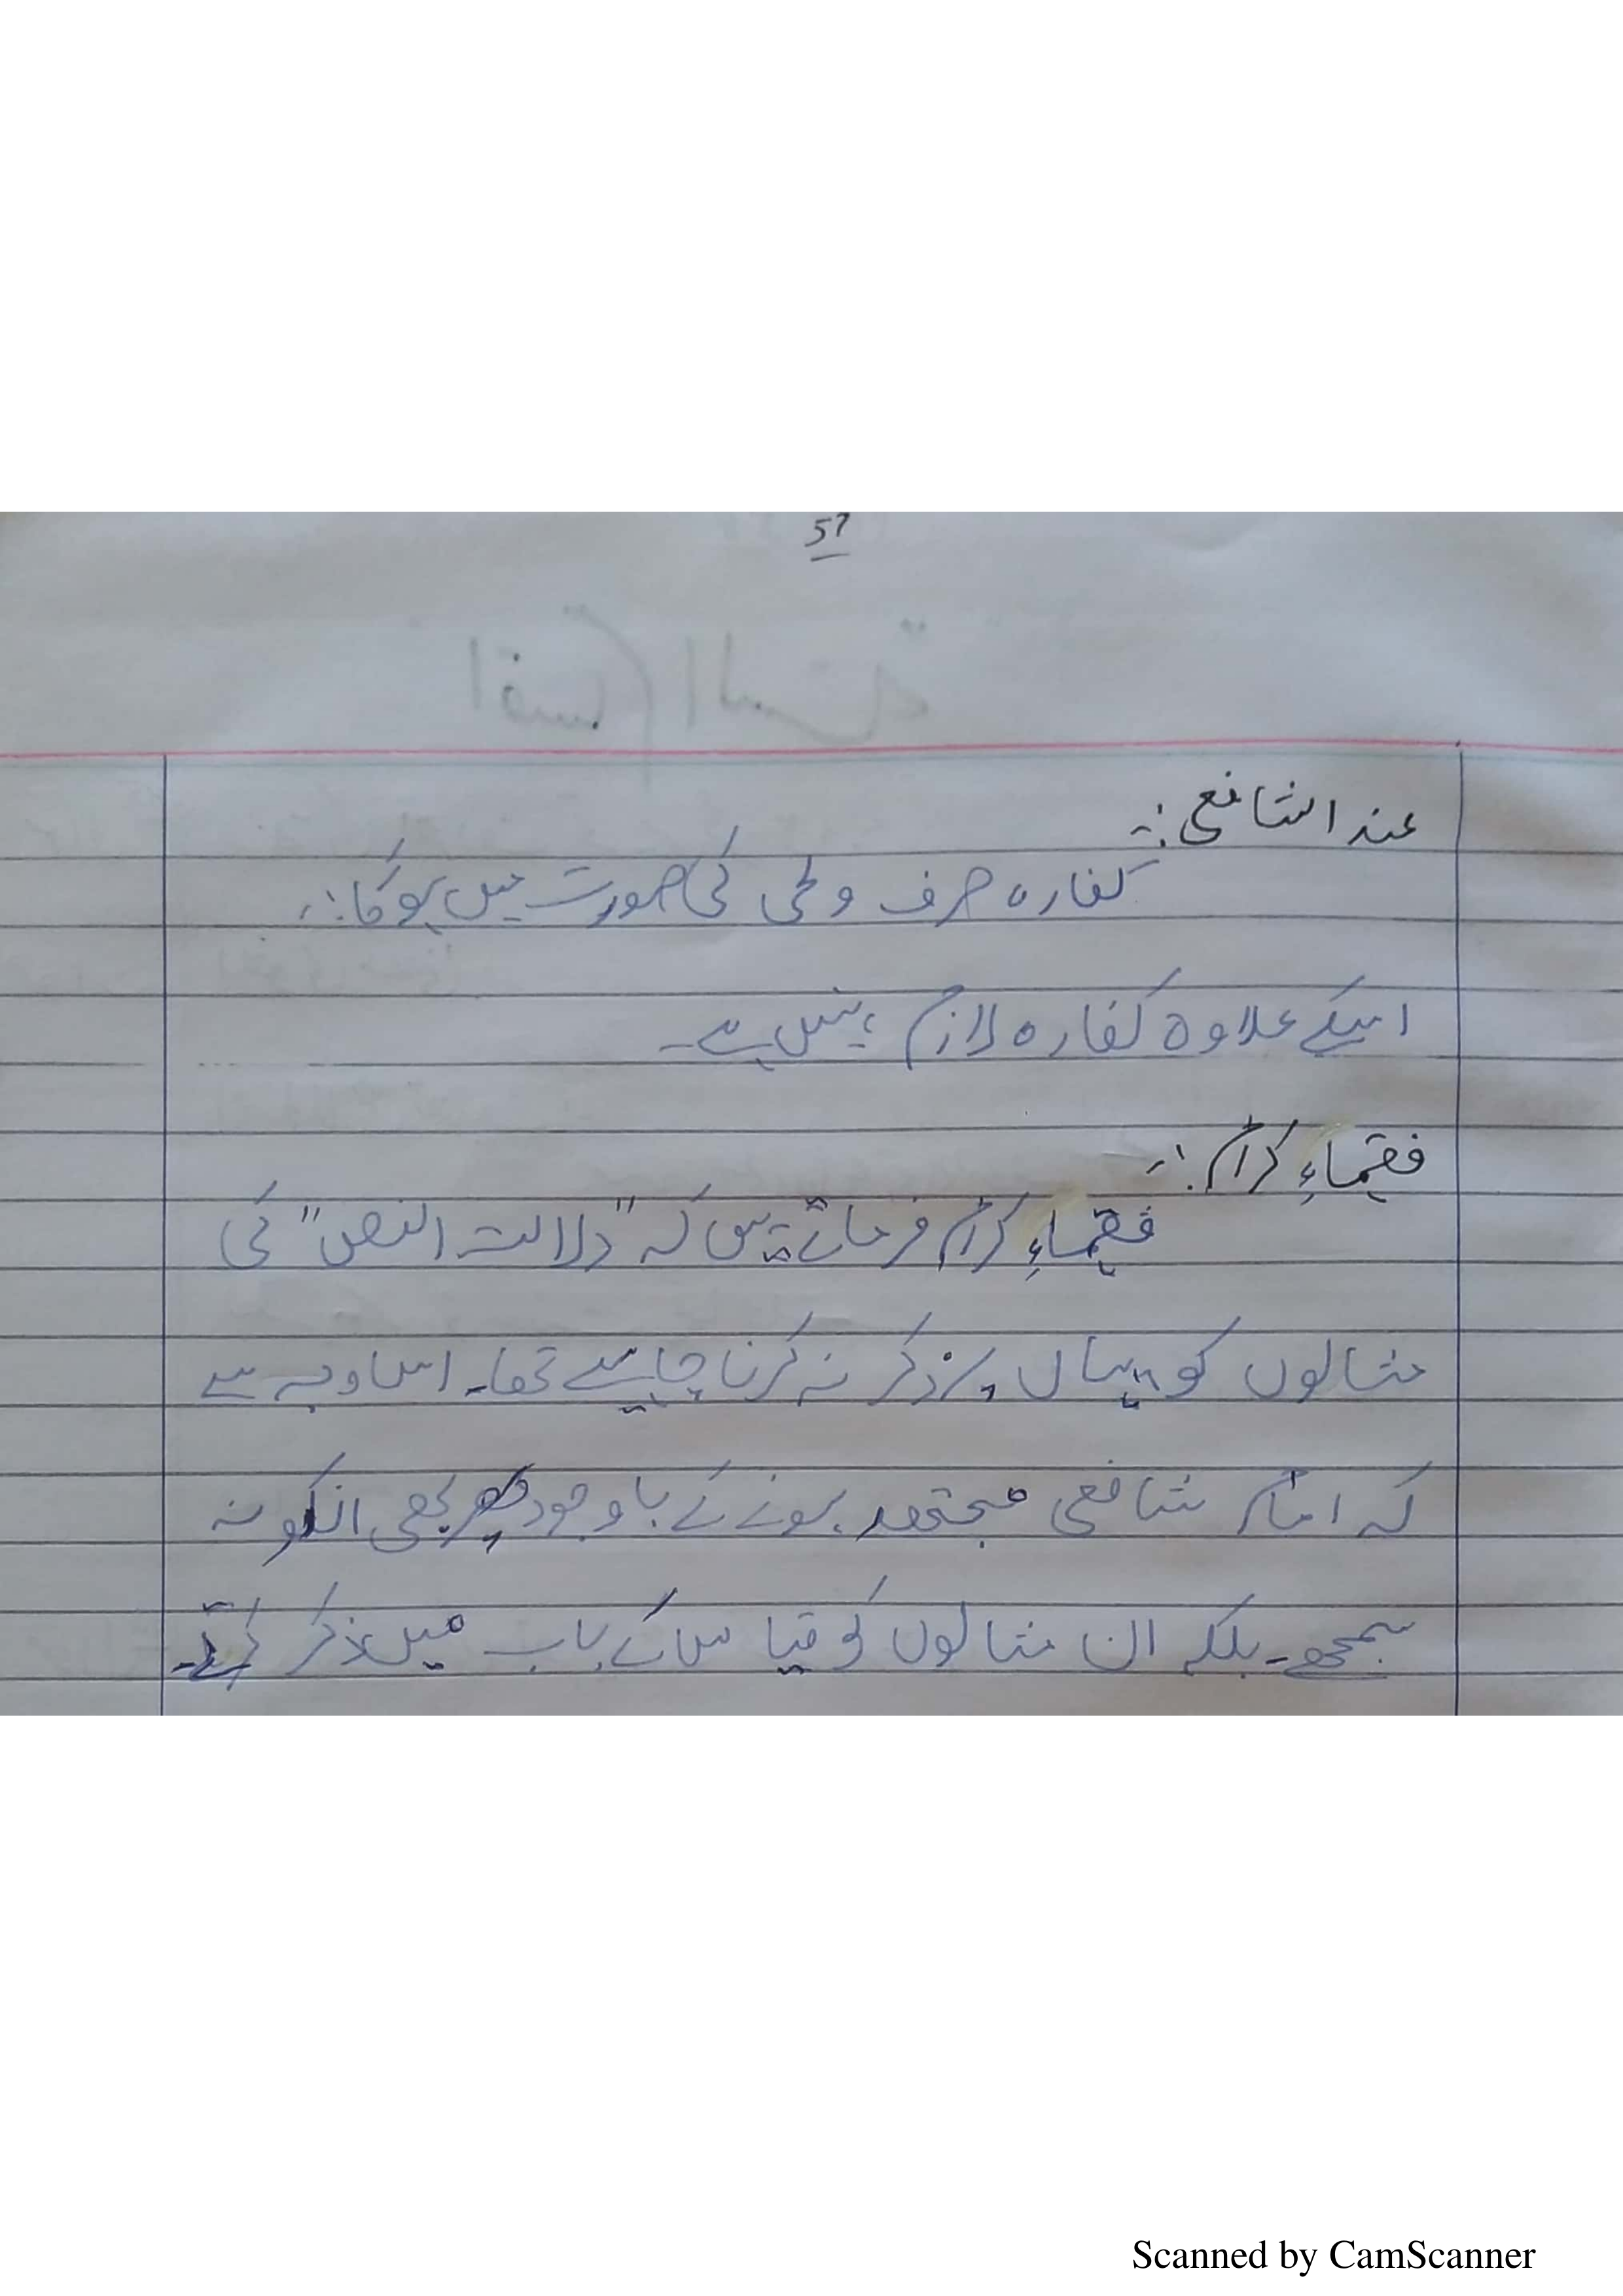 57
عند الشافعی :۔
کفارہ صرف وطی کی صورت میں ہوگا :۔
اسکے علاوہ کفارہ لازم نہیں ہے۔
فقہاءِ کرام :۔
فقہاءِ کرام فرماتے ہیں کہ "دلالت النص" کی
مثالوں کو یہاں پر ذکر نہ کرنا چاہیے تھا۔ اس وجہ سے
کہ امام شافعی مجتھد ہونے کے باوجود پھر بھی انکو نہ
سمجھے۔ بلکہ ان مثالوں کو قیاس کے باب میں ذکر کرتے۔
Scanned by CamScanner